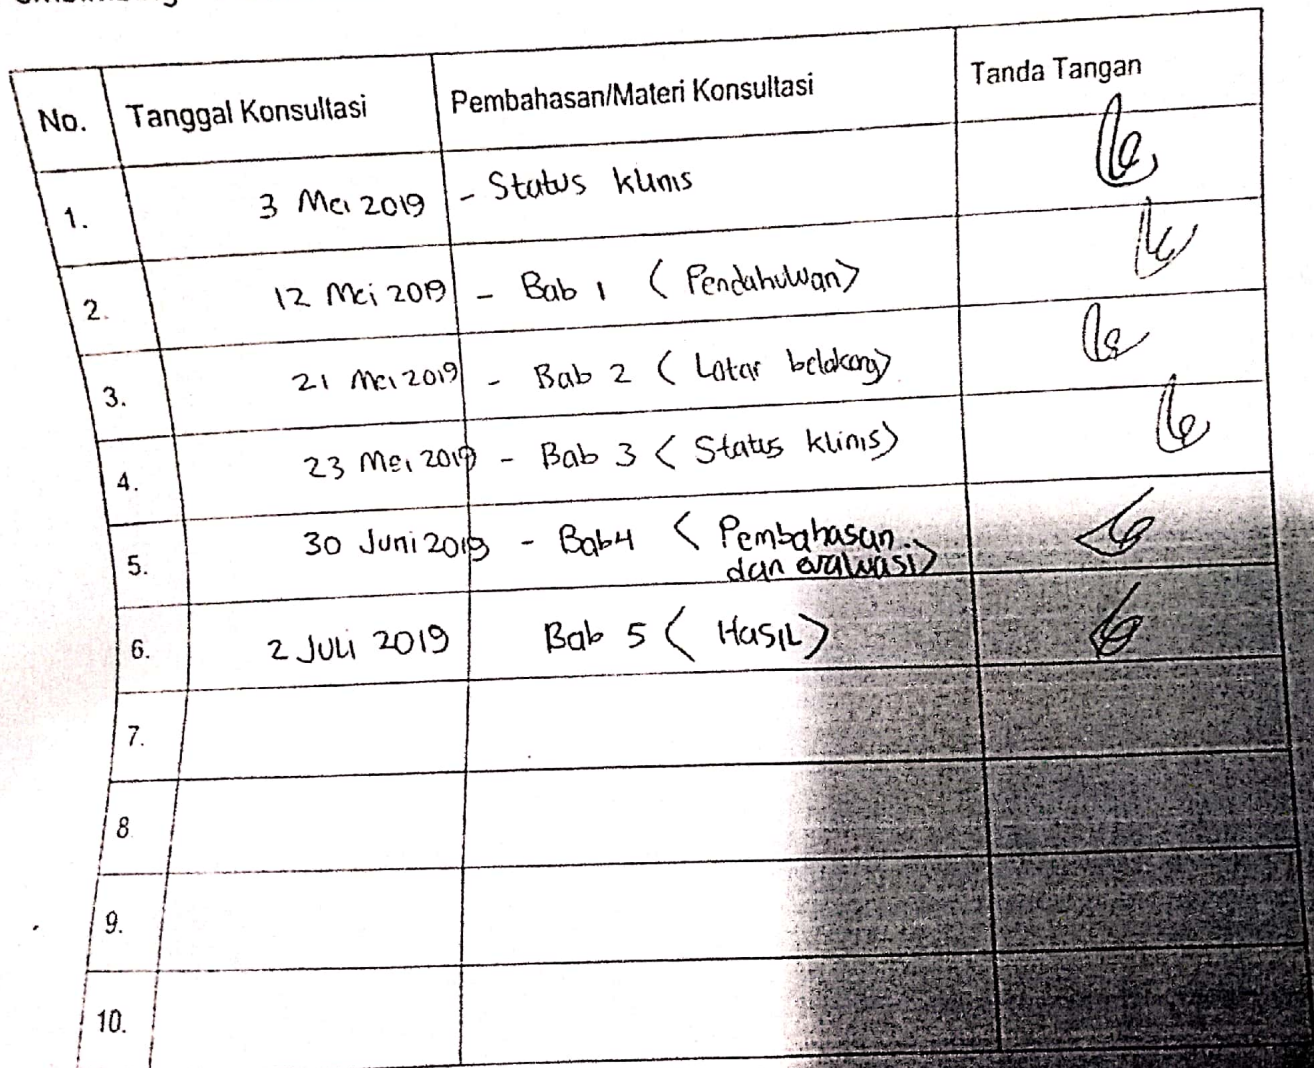 No. Tanggal Konsultasi Pembahasan/Materi Konsultasi Tanda Tangan
1. 3 Mei 2019 - Status klinis
2. 12 Mei 2019 - Bab 1 (Pendahuluan)
3. 21 Mei 2019 - Bab 2 (Latar belakang)
4. 23 Mei 2019 - Bab 3 (Status klinis)
5. 30 Juni 2019 - Bab 4 (Pembahasan
dan evaluasi)
6. 2 Juli 2019 Bab 5 (Hasil)
7.
8.
9.
10.